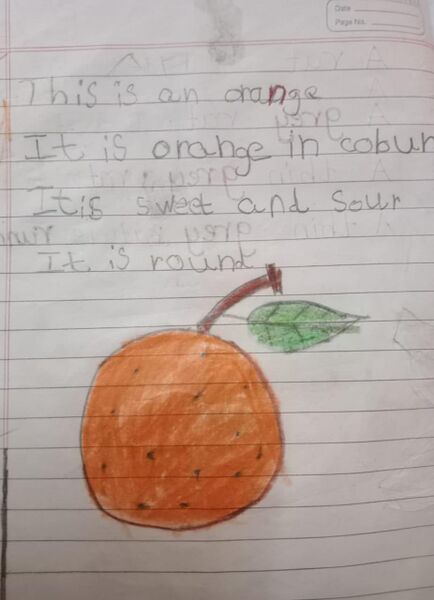 Date
Page No.
This is an orange
It is orange in cobur
It is sweet and sour
It is round